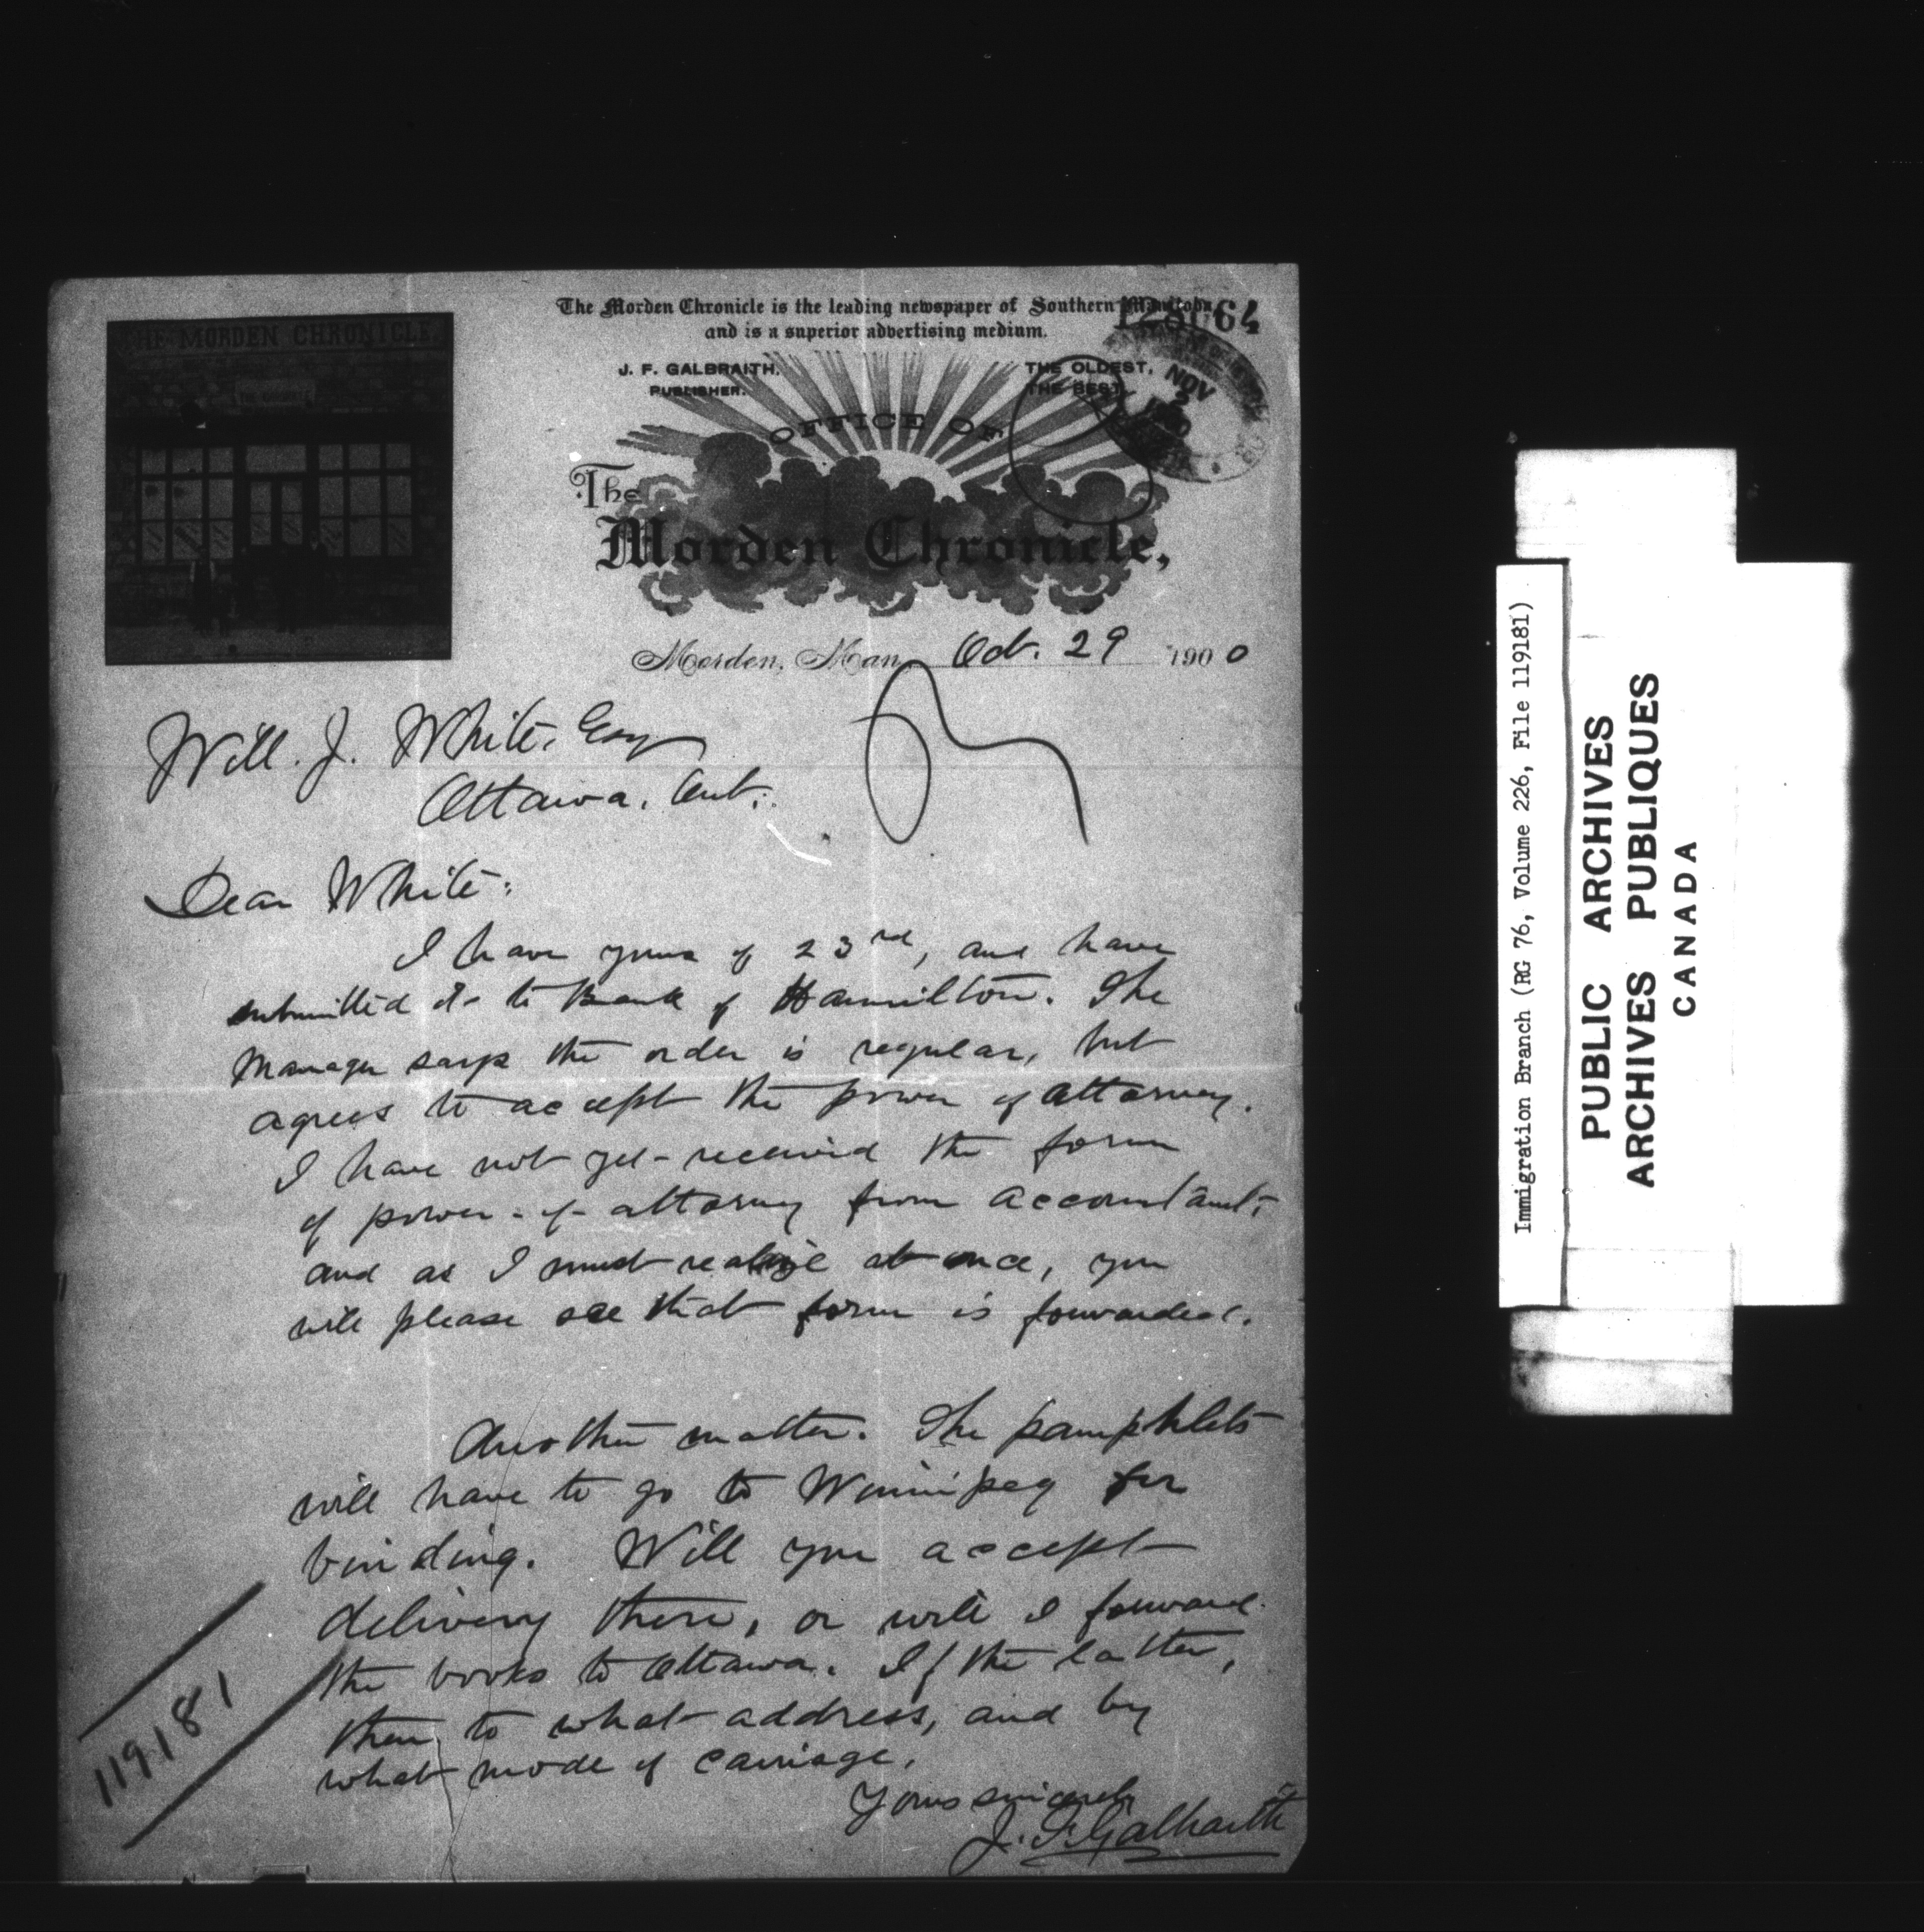 The Morden Chronicle is the leading newspaper of Southern Manitoba,
and is a superior advertising medium.
64
THE MORDEN CHRONICLE
J. F. GALBRAITH,
PUBLISHER.
THE OLDEST,
THE BEST,
NOV
2
OFFICE OF
The
Morden Chronicle,
Morden, Man. Oct. 29 1900
Will. J. White, Esq
Ottawa, Ont.
Dear White:
I have yours of 23rd, and have
submitted it to Bank of Hamilton. The
Manager says the order is regular, but
agrees to accept the power of attorney.
I have not yet received the form
of power-of-attorney from accountant,
and as I must realize at once, you
will please see that form is forwarded.
Another matter. The pamphlets
will have to go to Winnipeg for
binding. Will you accept
delivery there, or will I forward
the books to Ottawa. If the latter,
then to what address, and by
what mode of carriage.
Yours sincerely
J. F. Galbraith
119181
Immigration Branch (RG 76, Volume 226, File 119181)
PUBLIC ARCHIVES
ARCHIVES PUBLIQUES
CANADA